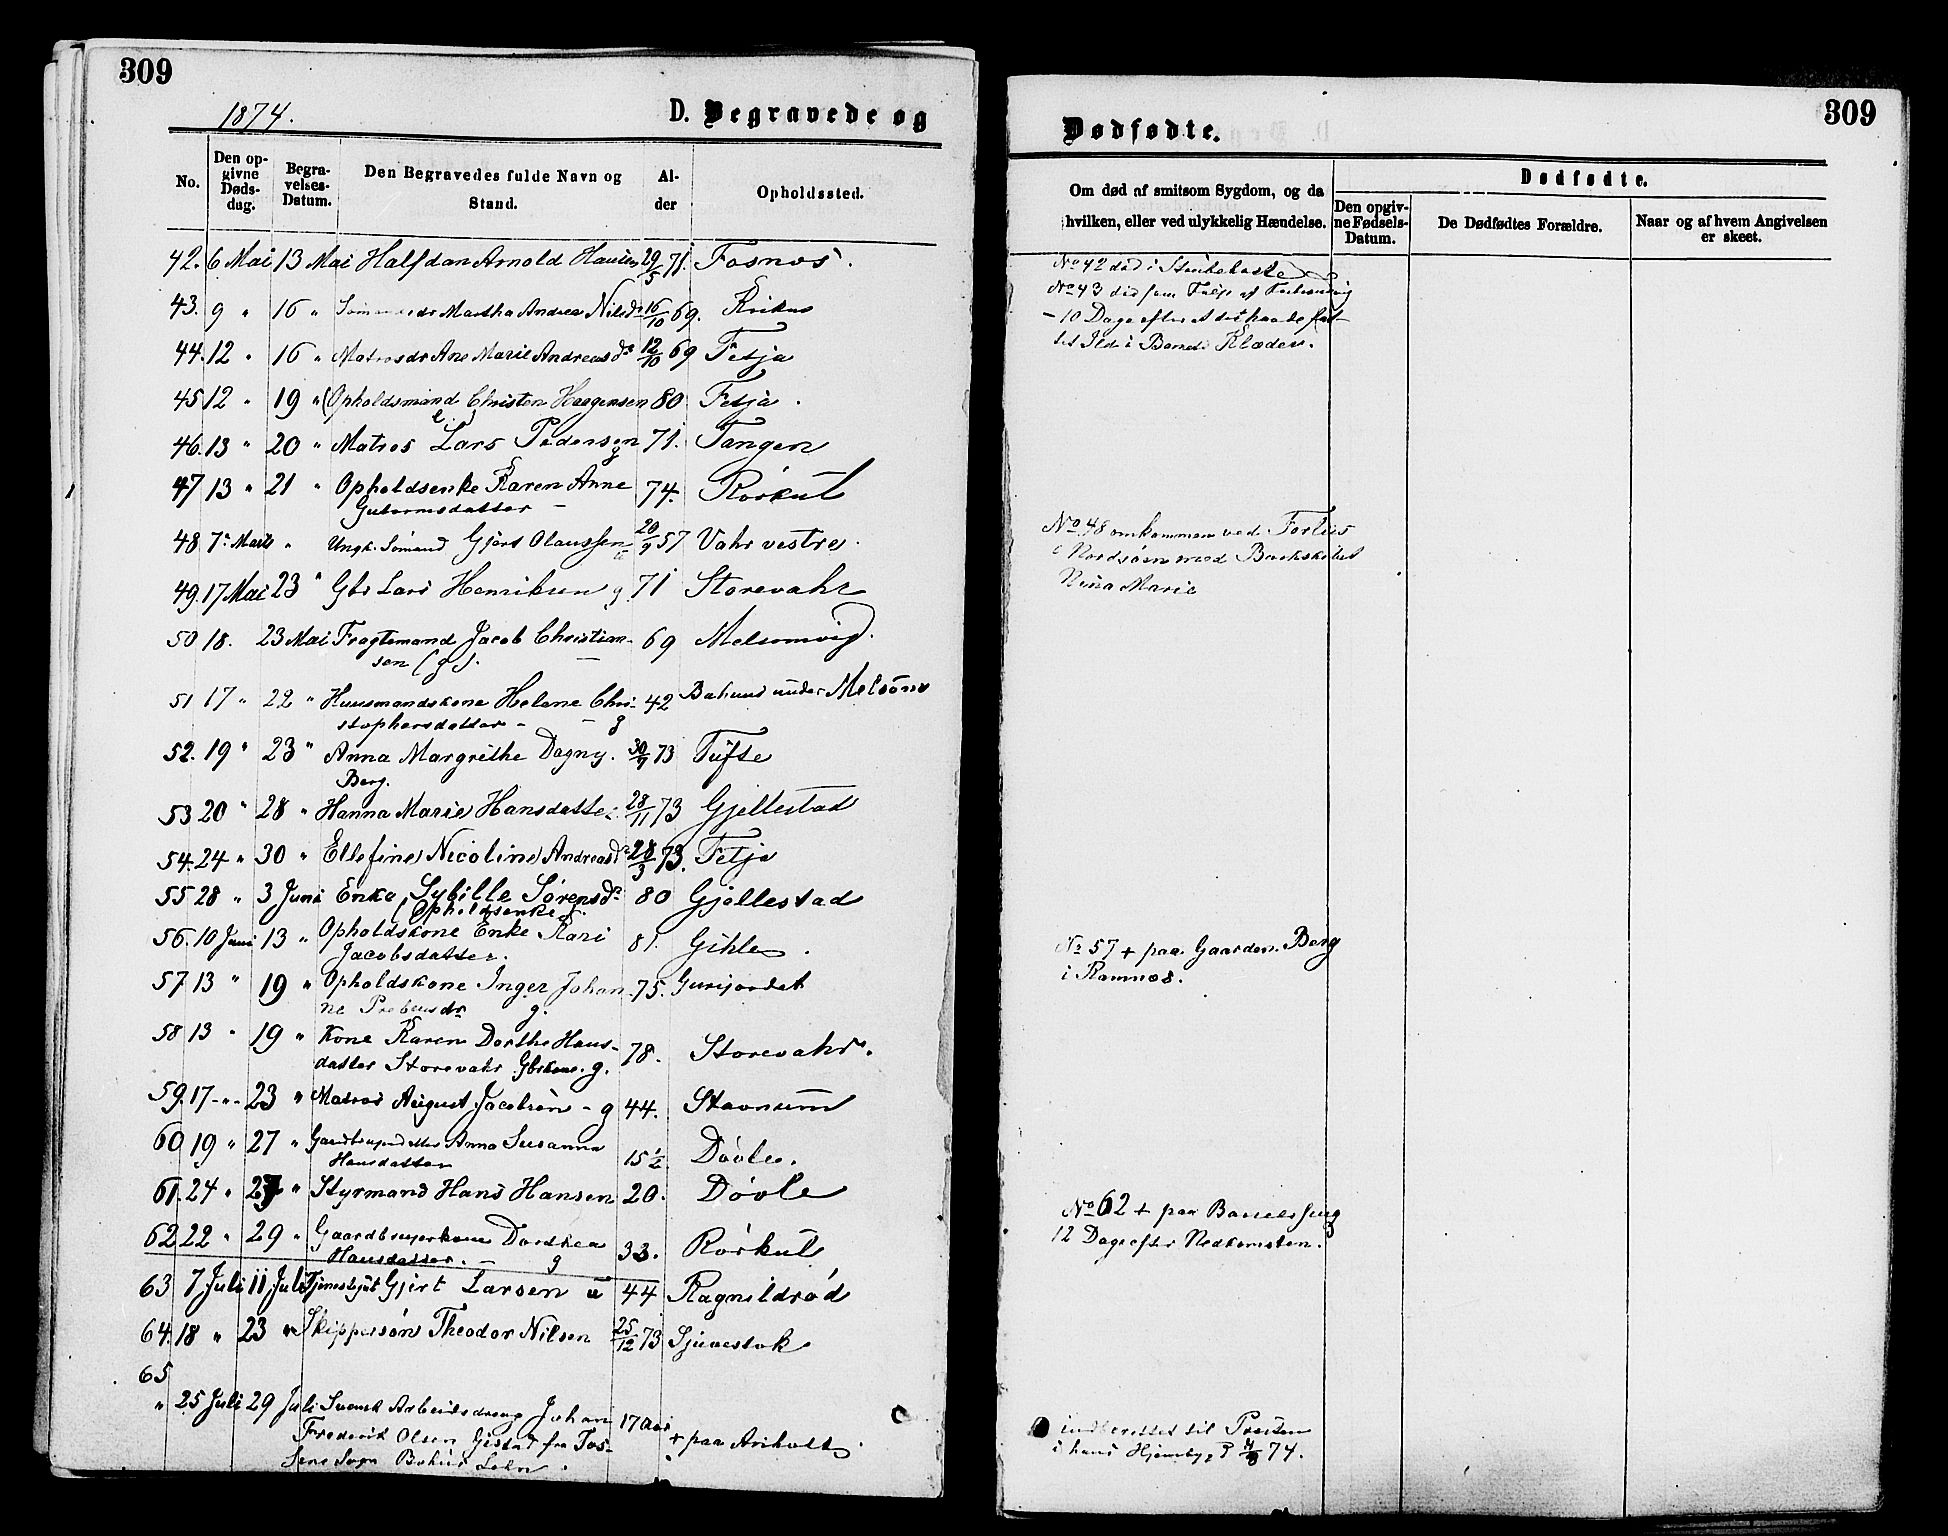 309
1874.
D. Begravede og
No.
Den opgivne Dødsdag.
Begravelses-Datum.
Den Begravedes fulde Navn og Stand.
Alder
Opholdssted.
42. 6 Mai 13 Mai Halfdan Arnold Hansen 29/5 71. Fosnes.
43. 9 " 16 " Martha Andrea Nilsdr 16/10 69.
44. 12 " 16 " Matrosdr Ane Marie Andreasdr 12/10 69 Fetja
45 12 " 19 " Opholdsmand Christen Haagensen 80 Fetja.
46. 13 " 20 " Matros Lars Pedersen g 71. Tangen
47 13 " 21 " Opholdsenke Karen Anne 74. Rørkul
Gutormsdatter -
48. 7 Marts " Ungk. Sømand Gjert Olaussen 20/9 57 Vahr vestre.
49. 17 Mai 23 " Gbr Lars Henriksen g. 71 Storevahr
50 18. 23 Mai Fragtemand Jacob Christian- 69 Melsomvig.
sen (g).
51 17 " 22 " Huusmandskone Helene Chri- 42 under Melsom
stophersdatter - - g
52. 19 " 23 " Anna Margrethe Dagny. 30/9 73 Tufte
Berg.
53 20 " 28 " Hanna Marie Hansdatter 28/11 73 Gjellestad
54. 24 " 30 " Ellefine Nicoline Andreasdr 28/3 73. Fetja
55 28 " 3 Juni Enke Sybille Sørensdr 80 Gjellestad
(Opholdsenke).
56. 10 Juni 13 " Opholdskone Enke Kari 81. Gihle.
Jacobsdatter.
57 13 " 19 " Opholdskone Inger Johan- 75. Gurijordet
ne Prebensdr g.
58 13 " 19 " Kone Karen Dorthe Hans- 78. Storevahr.
datter Storevahr Gbrkone. g.
59. 17 -"- 23 " Matros August Jacobsen - g 44. Stavnum
60 19 " 27 " Anna Susanna 15 1/2 Døvle.
Hansdatter
61. 24 " 27 " Styrmand Hans Hansen 20. Døvle
62 22 " 29 " Gaardbrugerkone Dorthea 33. Rørkul
Hansdatter. - g
63 7 Juli 11 Juli Tjenestgut Gjert Larsen u 44 Ragnildrød
64. 18 " 23 " Skippersøn Theodor Nilsen 25/12 73 Sjuestok
65
" 25 Juli 29 Juli Svensk Arbeidsdreng Johan 17 Aar + paa
Frederik Olsen Gistad fra Tos-
sene Sogn Bohus Lehn.
309
Dødfødte.
Om død af smitsom Sygdom, og da hvilken, eller ved ulykkelig Hændelse.
Dødfødte.
Den opgivne Fødsels-Datum.
De Dødfødtes Forældre.
Naar og af hvem Angivelsen er skeet.
No 42 død i Strubehoste
No 43 død som Følge af Forbrænding
- 10 Dage efter at det havde fat-
tet Ild i Barnets Klæder.
No 48 omkommen ved Forliis
i Nordsøen med Barkskibet
Nina Marie
No 57 + paa Gaarden Berg
i Ramnes.
No 62 + paa Barselseng
12 Dage efter Nedkomsten.
indberettet til Presten
i hans Hjembygd 4/8 74.